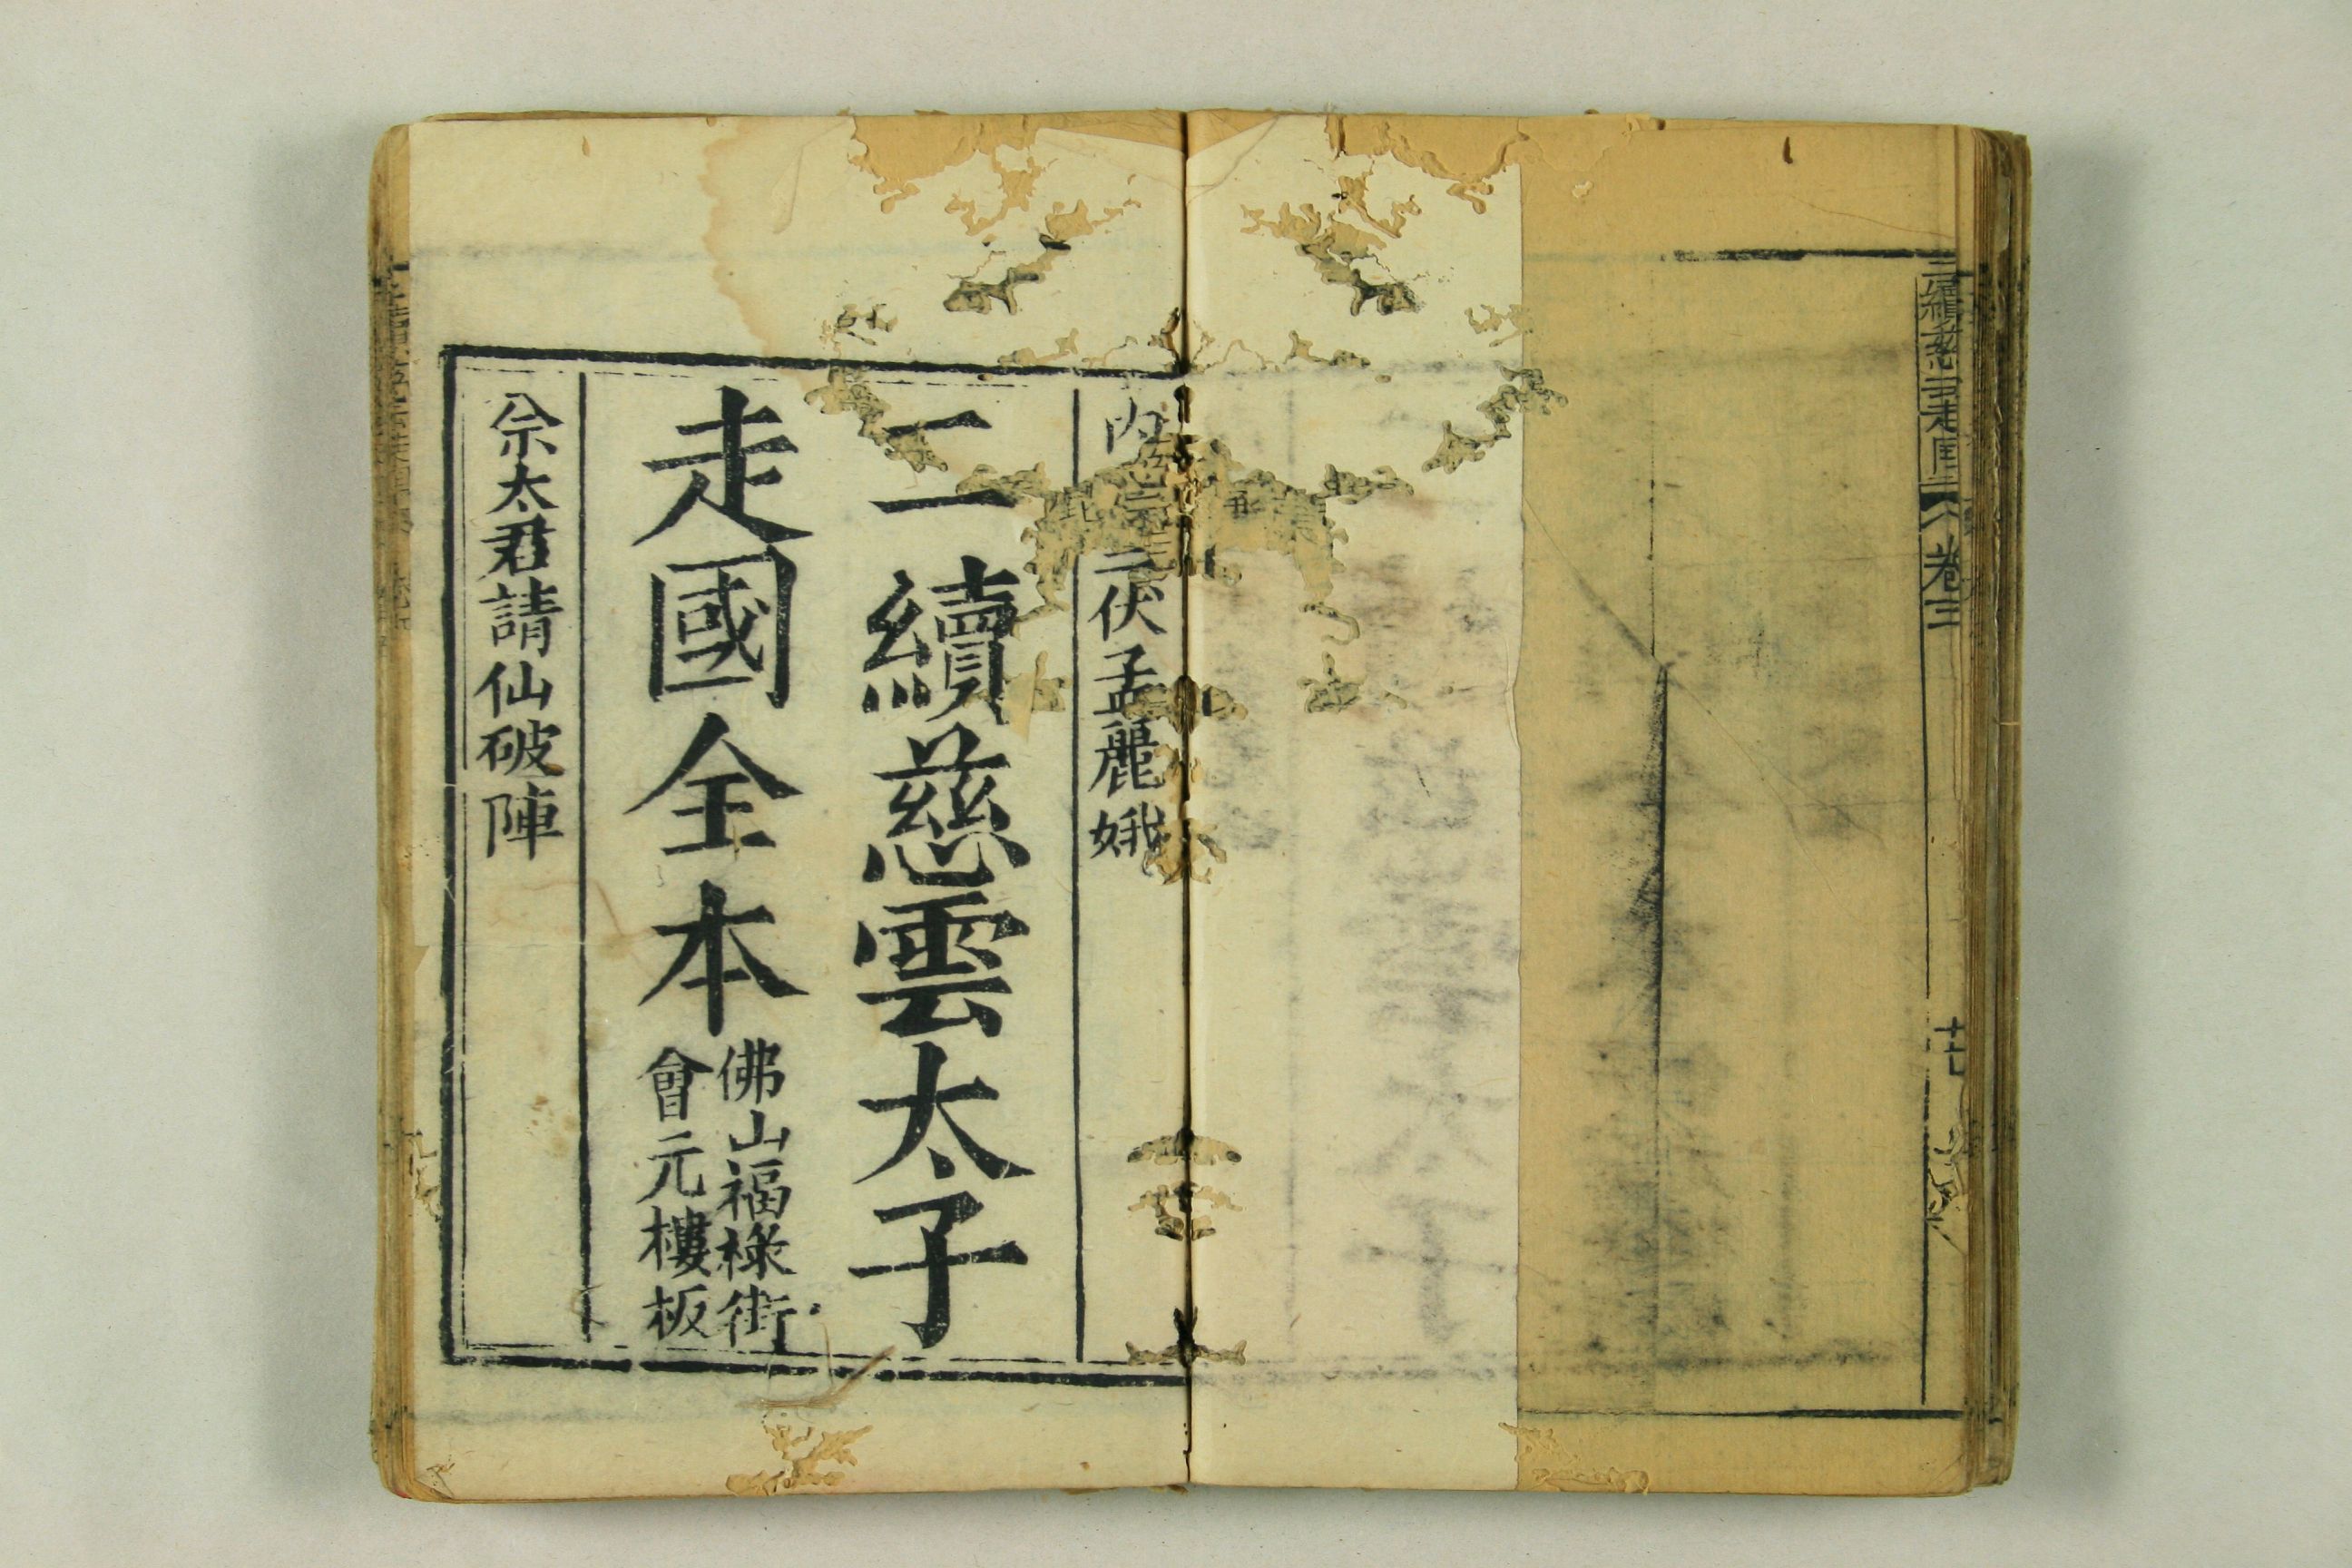 二續慈雲走国
卷三
十七
內
二伏孟麗娥
二續慈雲太子
走國全本
佛山福祿街
會元樓板
佘太君請仙破陣